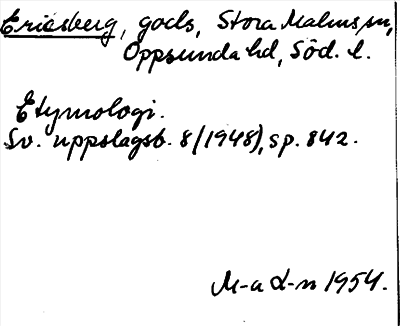 Ericsberg, gods, Stora Malms sn,
Oppunda hd, Söd. l.
Etymologi.
Sv. uppslagsb. 8 (1948), sp. 842.
M-a d-n 1954.